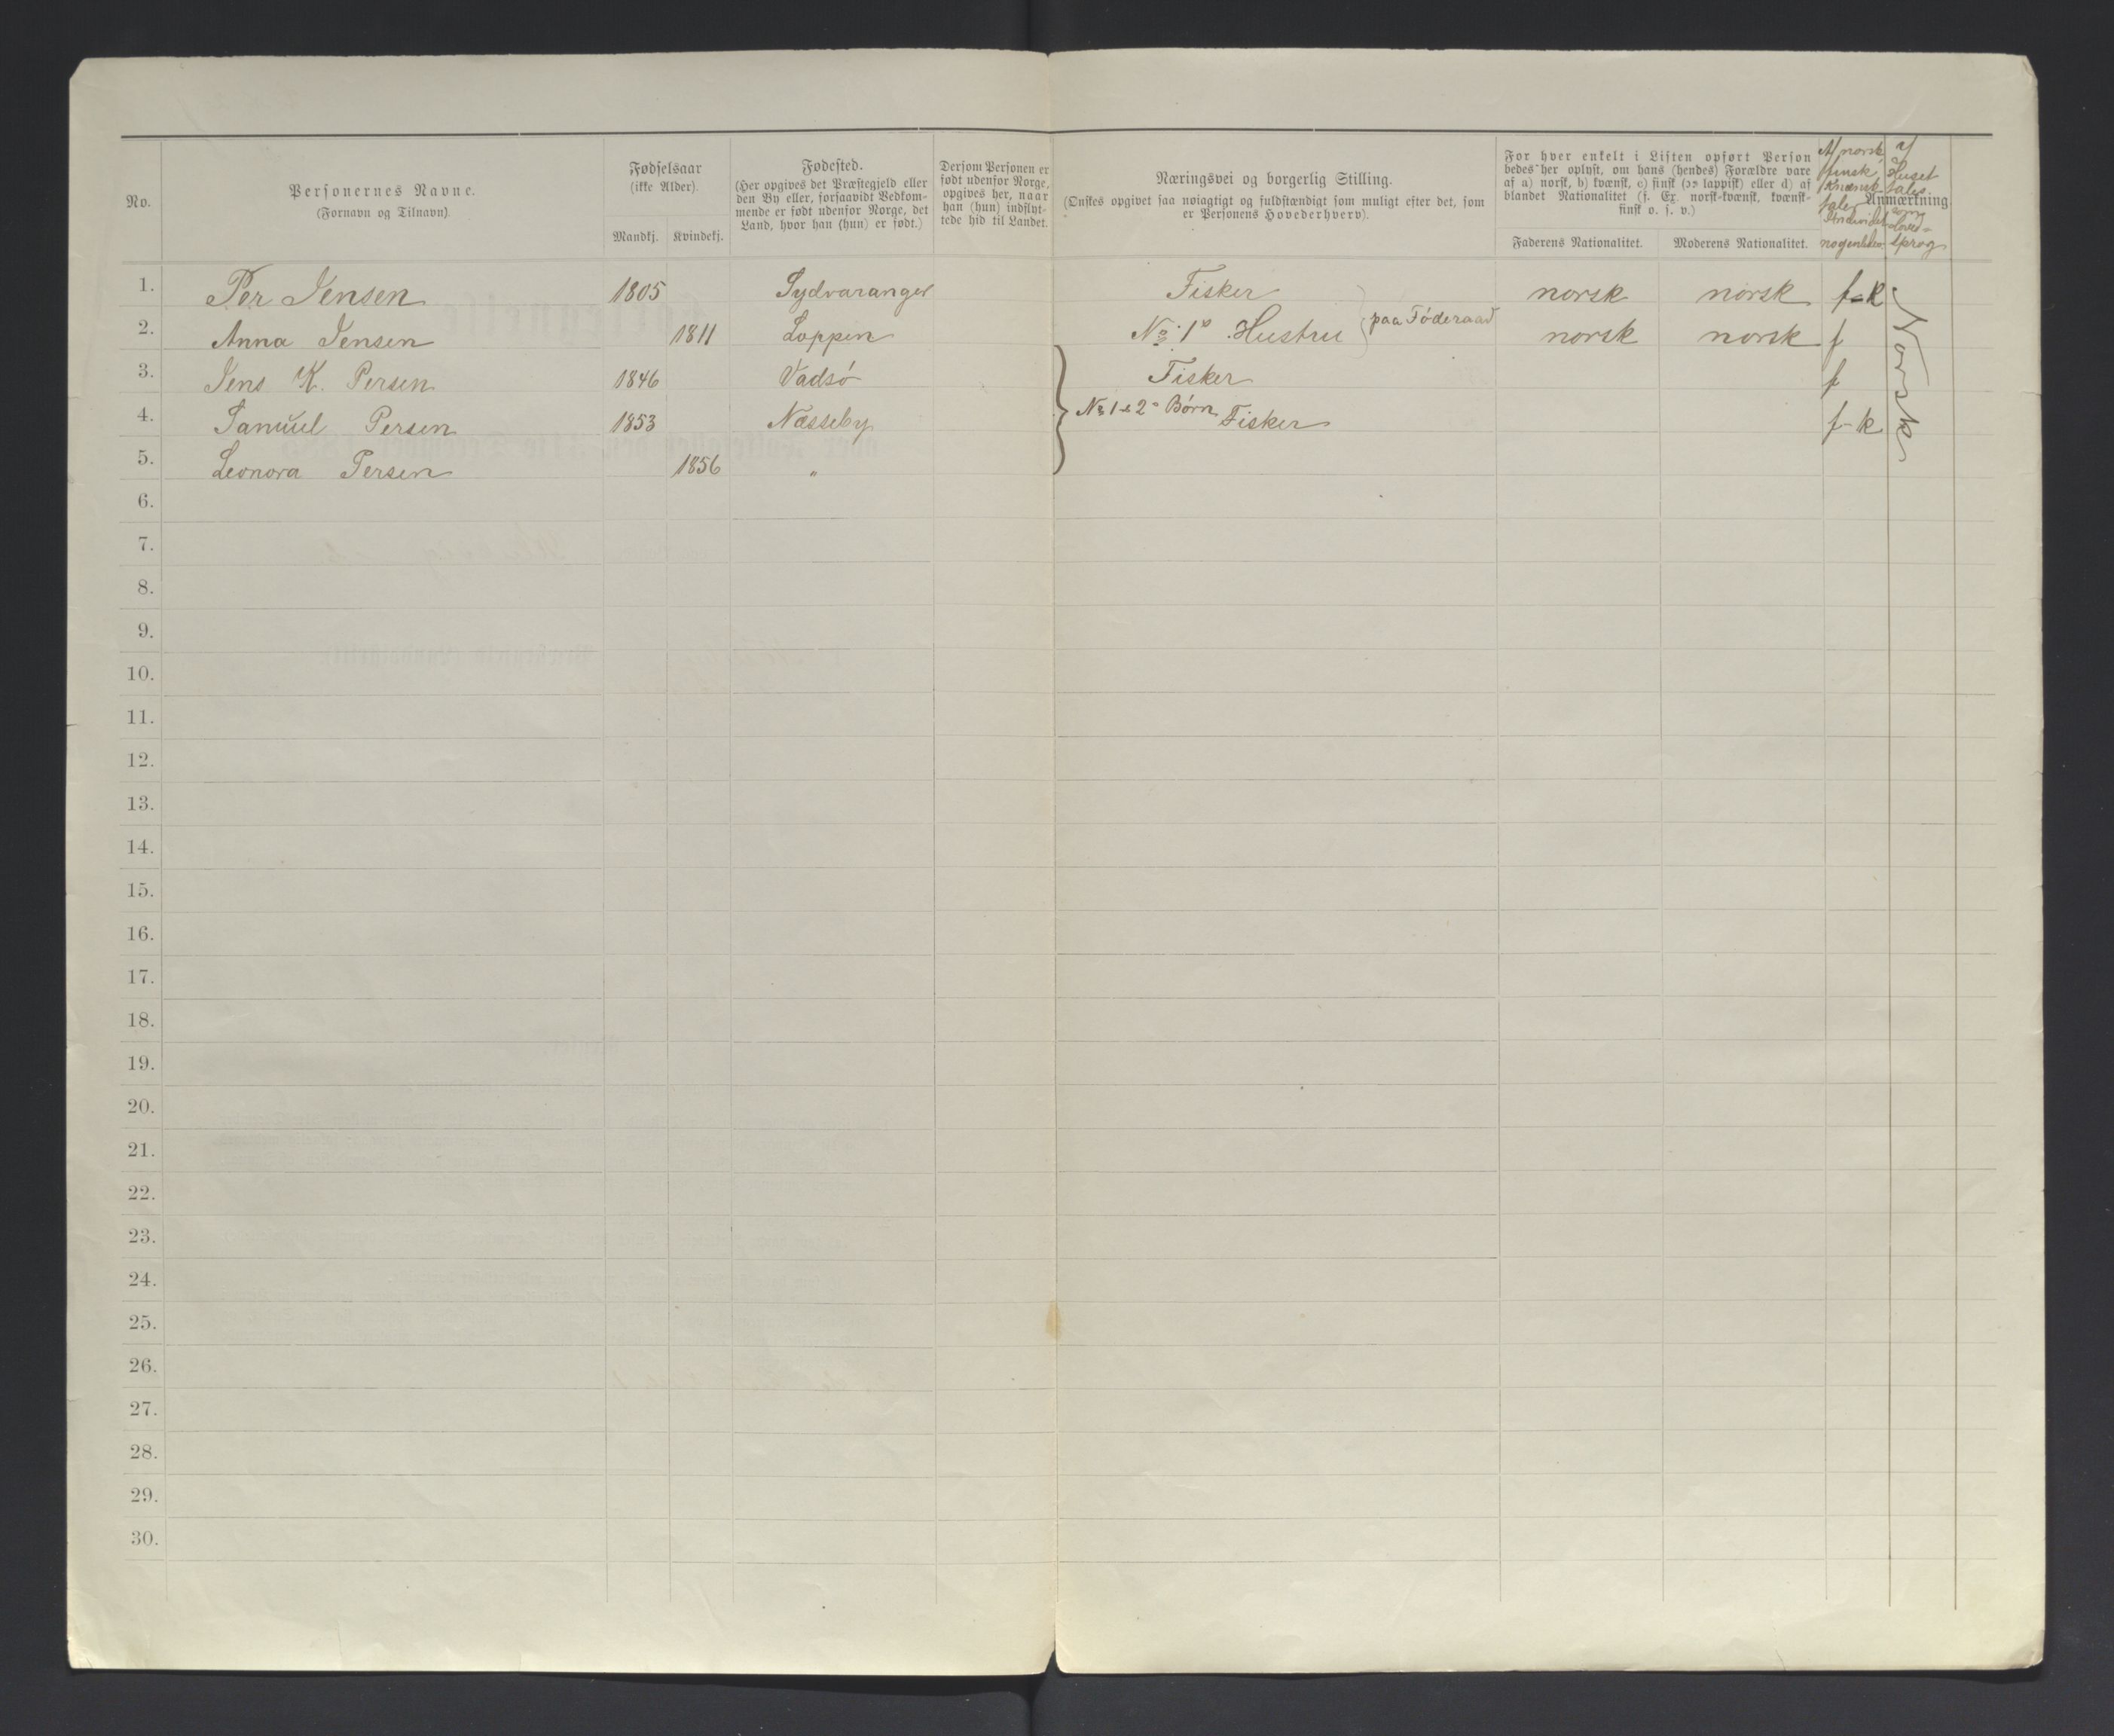 No.
Personernes Navne.
(Fornavn og Tilnavn).
Fødselsaar
(ikke Alder).
Mandkj. Kvindekj.
Fødested.
(Her opgives det Præstegjeld eller
den By eller, forsaavidt Vedkom-
mende er født udenfor Norge, det
Land, hvor han (hun) er født.)
Dersom Personen er
født udenfor Norge,
opgives her, naar
han (hun) indflyt-
tede hid til Landet.
Næringsvei og borgerlig Stilling.
(Ønskes opgivet saa nøiagtigt og fuldstændigt som muligt efter det, som
er Personens Hovederhverv).
For hver enkelt i Listen opført Person
bedes her oplyst, om hans (hendes) Forældre vare
af a) norsk, b) kvænsk, c) finsk (ɔ: lappisk) eller d) af
blandet Nationalitet (f. Ex. norsk-kvænsk, kvænsk-
finsk o. s. v.)
Faderens Nationalitet. Moderens Nationalitet.
Af norsk,
finsk,
kvænsk
taler
Individet
Anmærkning.
Huset
tales
som
Sprog
1. Per Jensen 1805 Sydvaranger Fisker norsk norsk f-k
paa Föderaad
2. Anna Jensen 1811 Loppen No 1s Hustru norsk norsk f
3. Jens K. Persen 1846 Vadsö Fisker f
4. Samuel Persen 1853 Næsseby No 1 & 2s Börn Fisker f-k
5. Leonora Persen 1856 "
Norsk
6.
7.
8.
9.
10.
11.
12.
13.
14.
15.
16.
17.
18.
19.
20.
21.
22.
23.
24.
25.
26.
27.
28.
29.
30.